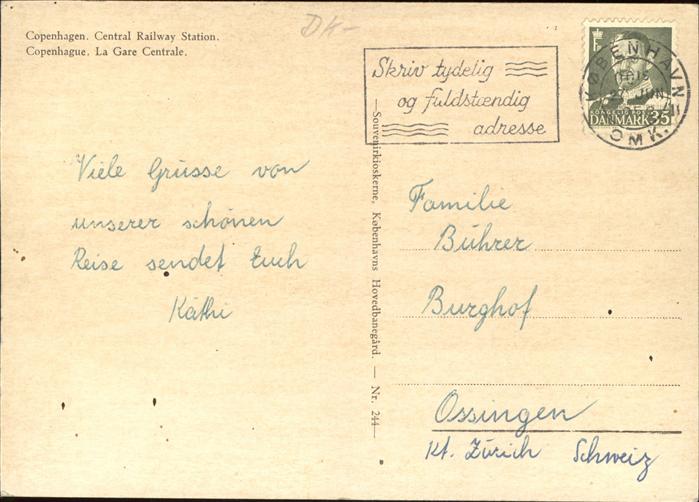 Copenhagen. Central Railway Station.
Copenhague. La Gare Centrale.
DK-
Skriv tydelig
og fuldstændig
adresse
KØBENHAVN
OMK.
JUN
DANMARK 35
Viele Grüsse von
unserer schönen
Reise sendet Euch
Käthi
—Souvenirkioskerne, Københavns Hovedbanegård. — Nr. 244—
Familie
Bührer
Burghof
Ossingen
Kt. Zürich Schweiz